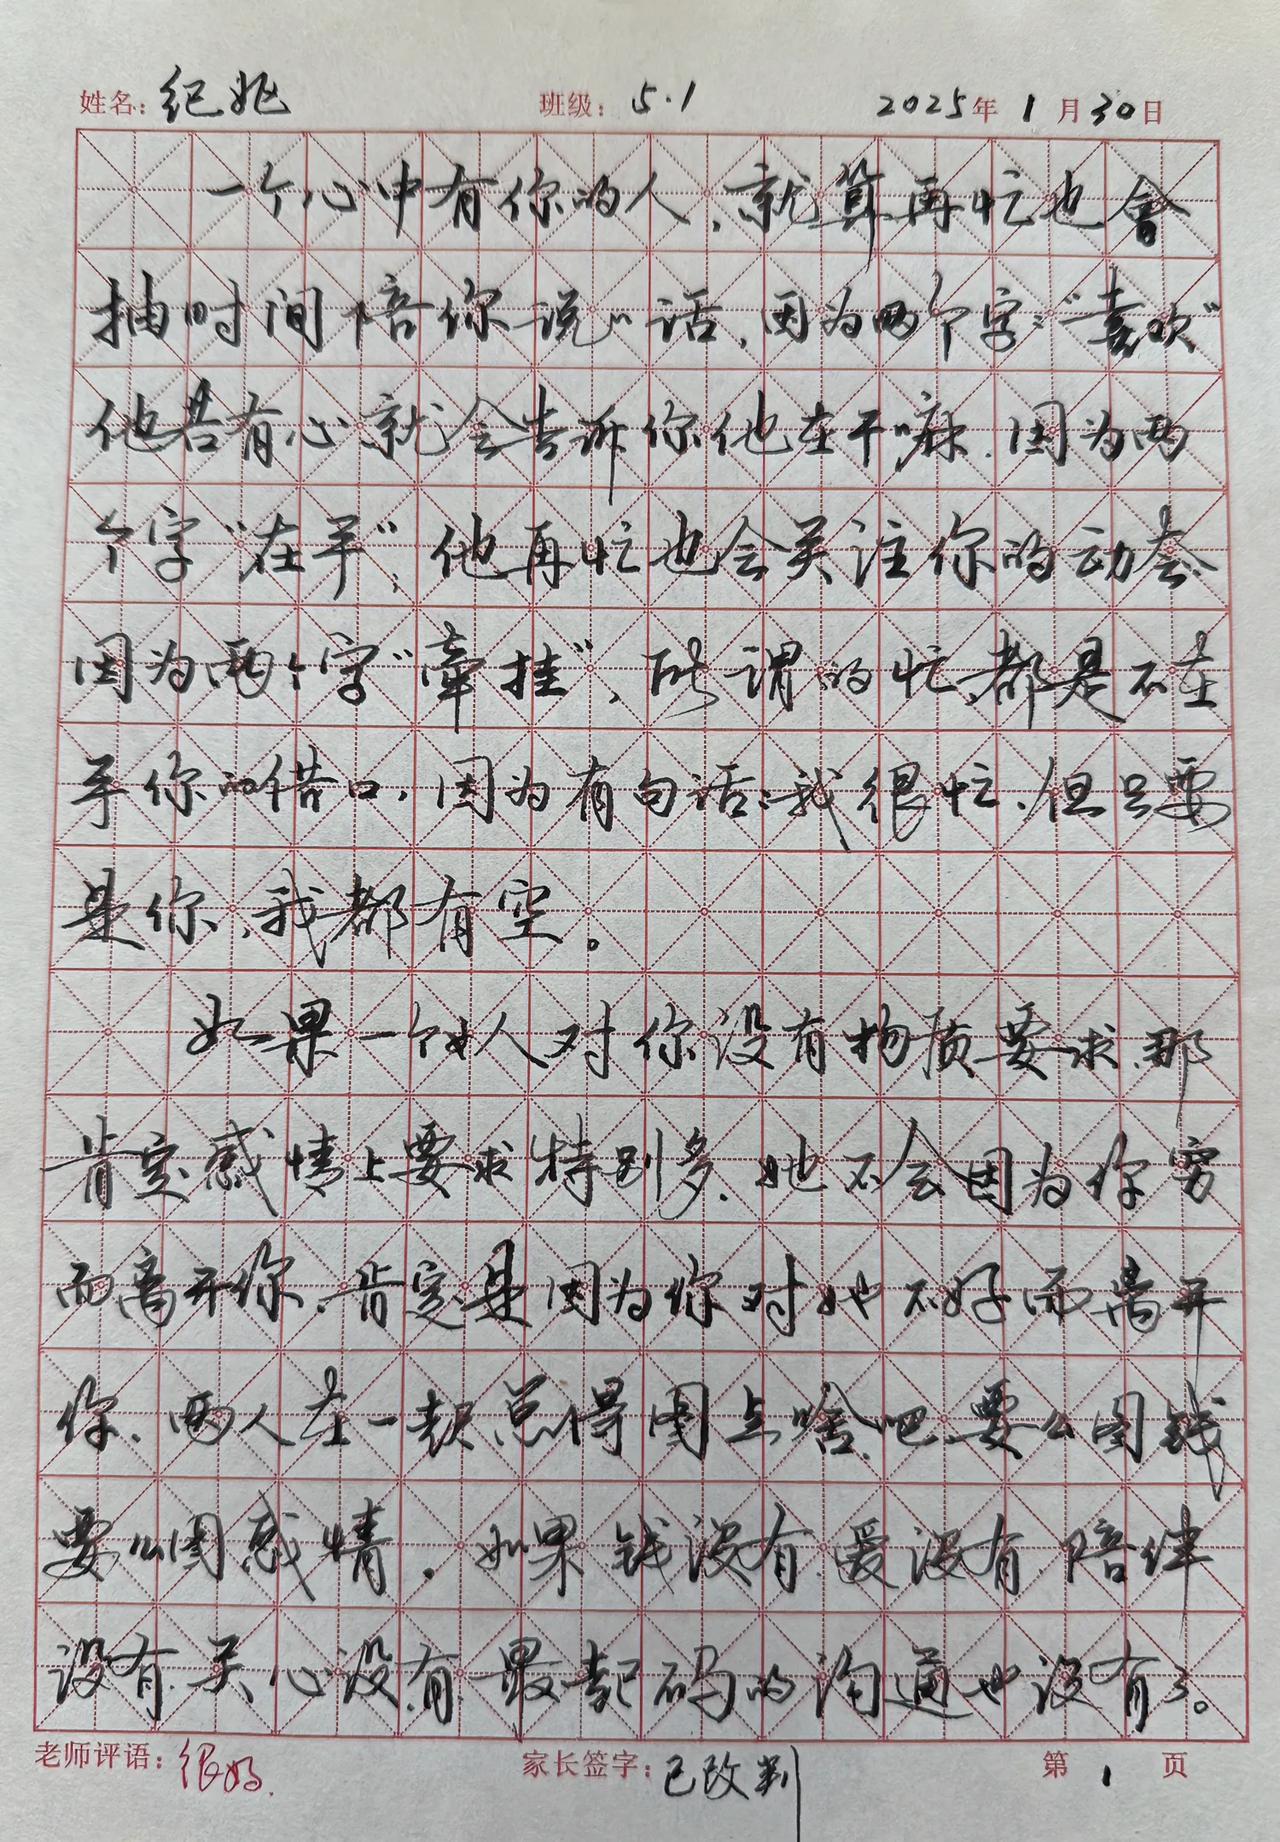 姓名：纪妪 班级：5.1 2025年1月30日
一个心中有你的人，就算再忙也會
抽时间陪你说说话，因为两个字：“喜欢”
他若有心就会告诉你他在干嘛，因为两
个字“在乎”，他再忙也会关注你的动态
因为两个字“牵挂”，所谓的忙，都是不在
乎你的借口，因为有句话：我很忙，但只要
是你，我都有空。
如果一个人对你没有物质要求，那
肯定感情上要求特别多，她不会因为你穷
而离开你，肯定是因为你对她不好而离开
你，两人在一起总得图点啥吧，要么图钱
要么图感情，如果钱没有，爱没有，陪伴
没有，关心没有，最起码的沟通也没有了。
老师评语：很好. 家长签字：已改判 第1页